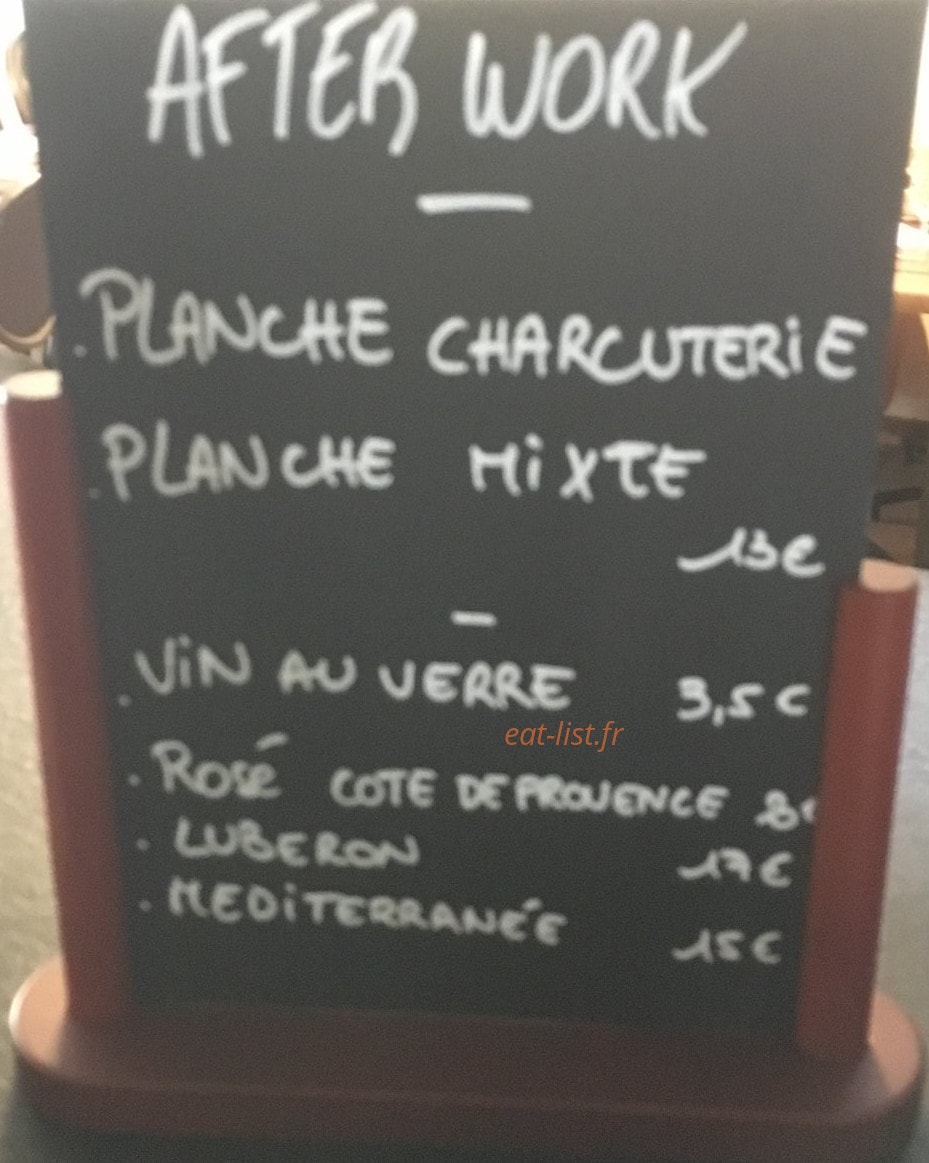 AFTER WORK
—
. PLANCHE CHARCUTERIE
. PLANCHE MiXTE
13€
—
. ViN AU VERRE 3,5€
eat-list.fr
. Rosé COTE DE PROVENCE
. LUBERON 17€
. MEDiTERRANÉE 15€